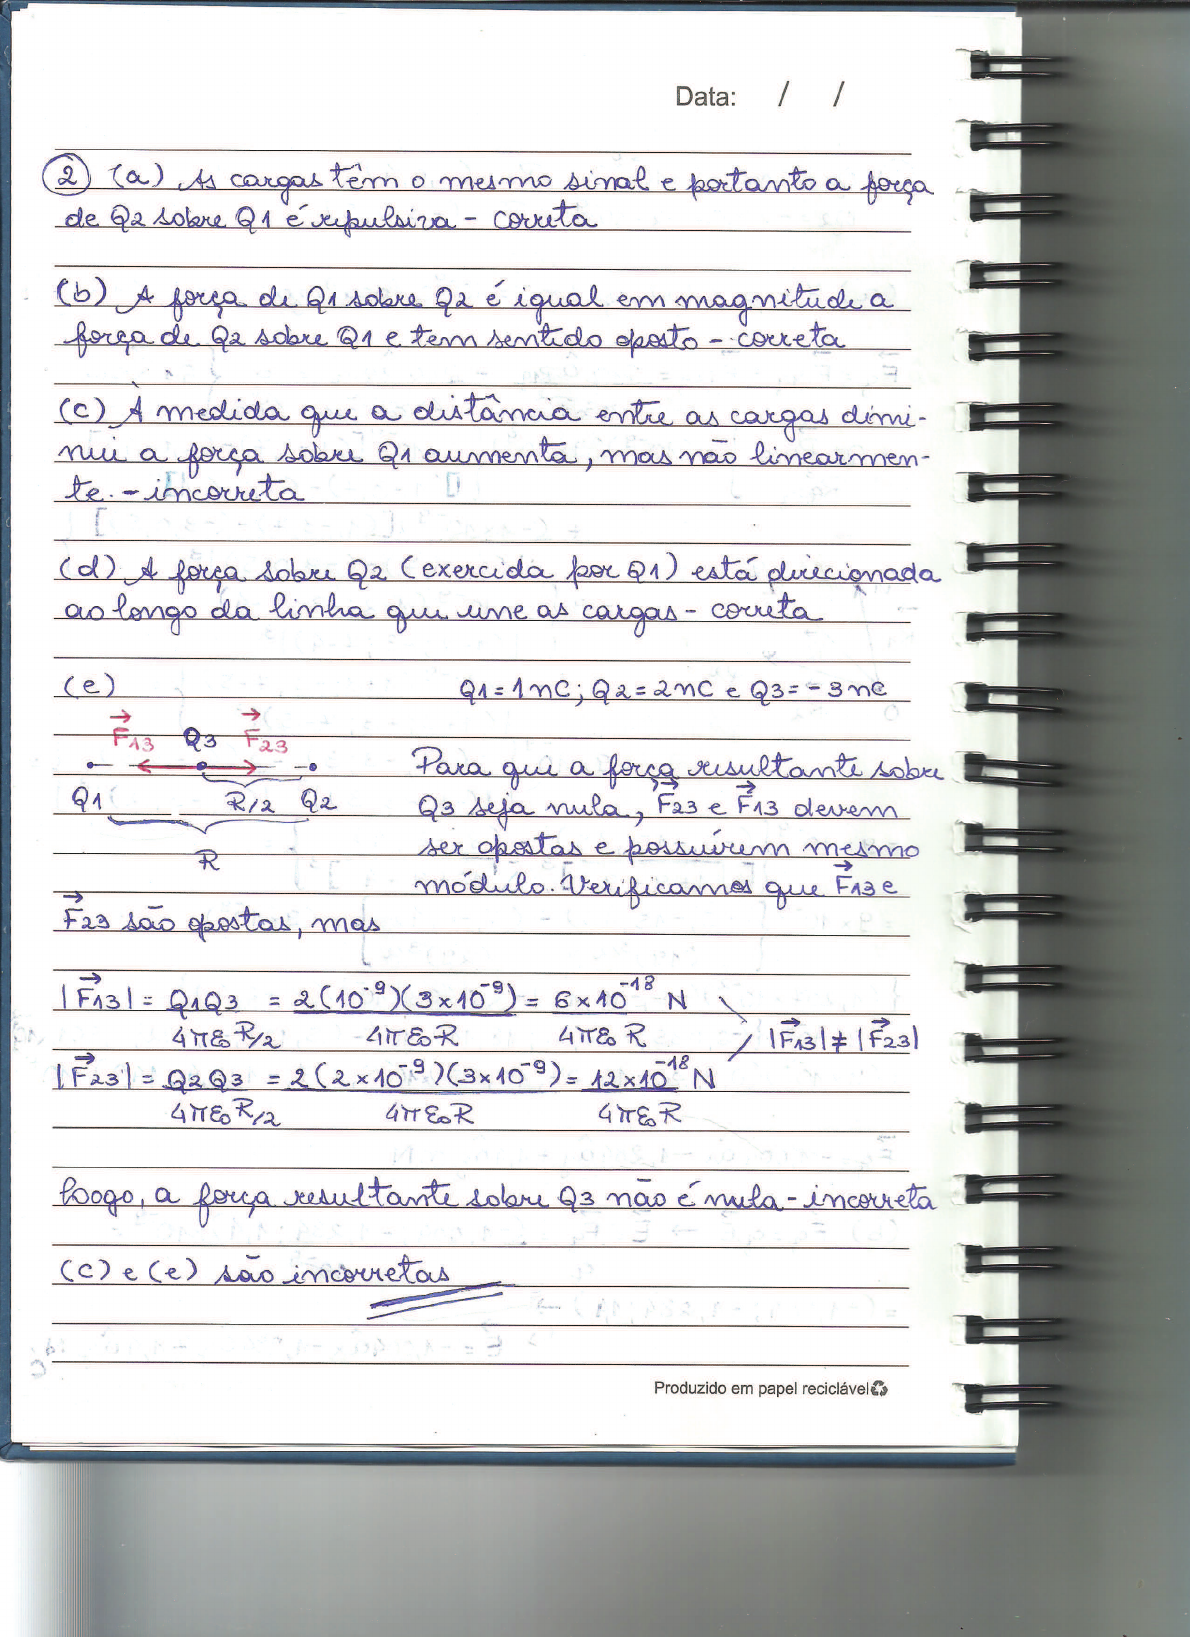 Data: / /
② (a) As cargas têm o mesmo sinal e portanto a força
de Q2 sobre Q1 é repulsiva - correta
(b) A força de Q1 sobre Q2 é igual em magnitude a
força de Q2 sobre Q1 e tem sentido oposto - correta
(c) À medida que a distância entre as cargas dimi-
nui a força sobre Q1 aumenta, mas não linearmen-
te. - incorreta
(d) A força sobre Q2 (exercida por Q1) está direcionada
ao longo da linha que une as cargas - correta
(e) Q1 = 1nC; Q2 = 2nC e Q3 = -3nC
F⃗13 Q3 F⃗23
Q1 R/2 Q2
R
Para que a força resultante sobre
Q3 seja nula, F⃗23 e F⃗13 devem
ser opostas e possuírem mesmo
módulo. Verificamos que F⃗13 e
F⃗23 são opostas, mas
|F⃗13| = Q1Q3 = 2(10⁻⁹)(3x10⁻⁹) = 6x10⁻¹⁸ N
4πε₀R/2 4πε₀R 4πε₀R |F⃗13| ≠ |F⃗23|
|F⃗23| = Q2Q3 = 2(2x10⁻⁹)(3x10⁻⁹) = 12x10⁻¹⁸ N
4πε₀R/2 4πε₀R 4πε₀R
Logo, a força resultante sobre Q3 não é nula - incorreta
(c) e (e) são incorretas
Produzido em papel reciclável